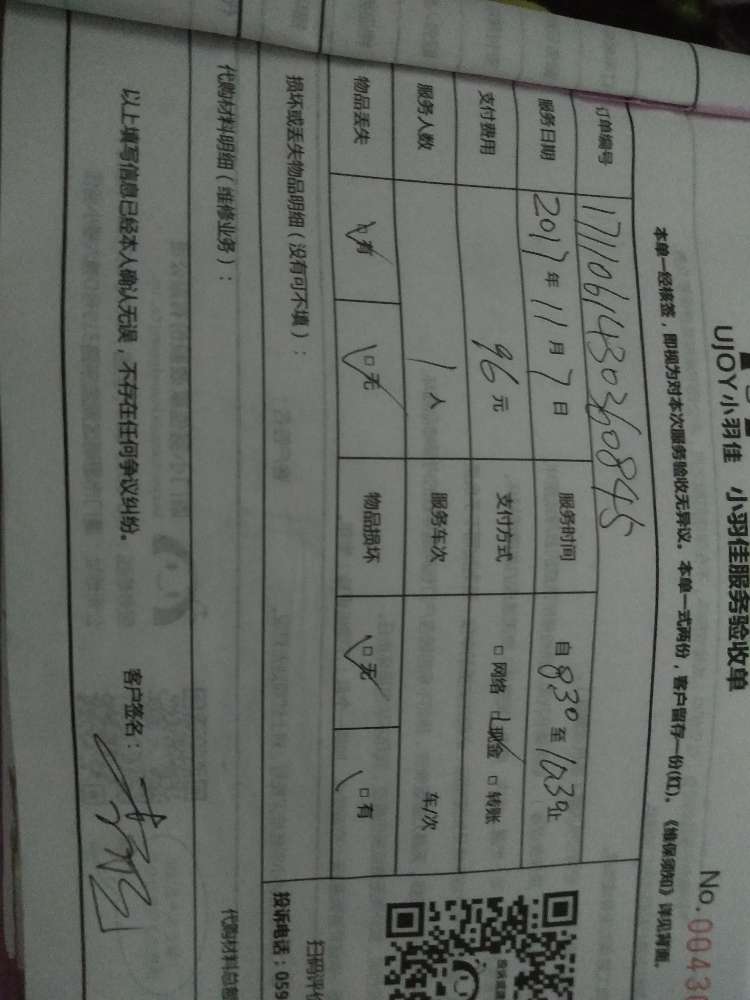 UJOY小羽佳 小羽佳服务验收单
No.0043
本单一经核签，即视为对本次服务验收无异议。本单一式两份，客户留存一份(红)。《维保须知》详见背面。
订单编号 171106143030845
服务日期 2017年11月7日 服务时间 自8:30至10:30止
支付费用 96元 支付方式 □网络 ☑现金 □转账
服务人数 1人 服务车次 车/次
物品丢失 ☑有 ☑无 物品损坏 ☑无 □有
损坏或丢失物品明细（没有可不填）：
扫码评价
投诉电话：059
代购材料明细（维修业务）：
代购材料总
以上填写信息已经本人确认无误，不存在任何争议纠纷。 客户签名：